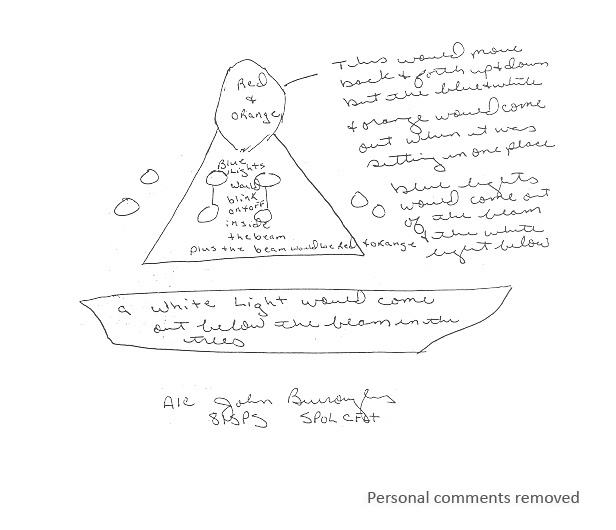 Red
&
orange
This would move
back & forth up & down
but the blue & white
& orange would come
out when it was
sitting in one place
Blue
Lights
would
blink
on + off
inside
the beam
plus the beam would be Red & orange
blue lights
would come out
of the beam
& the white
light below
a white Light would come
out below the beam in the
trees
A1C John Burroughs
81SPS
Personal comments removed